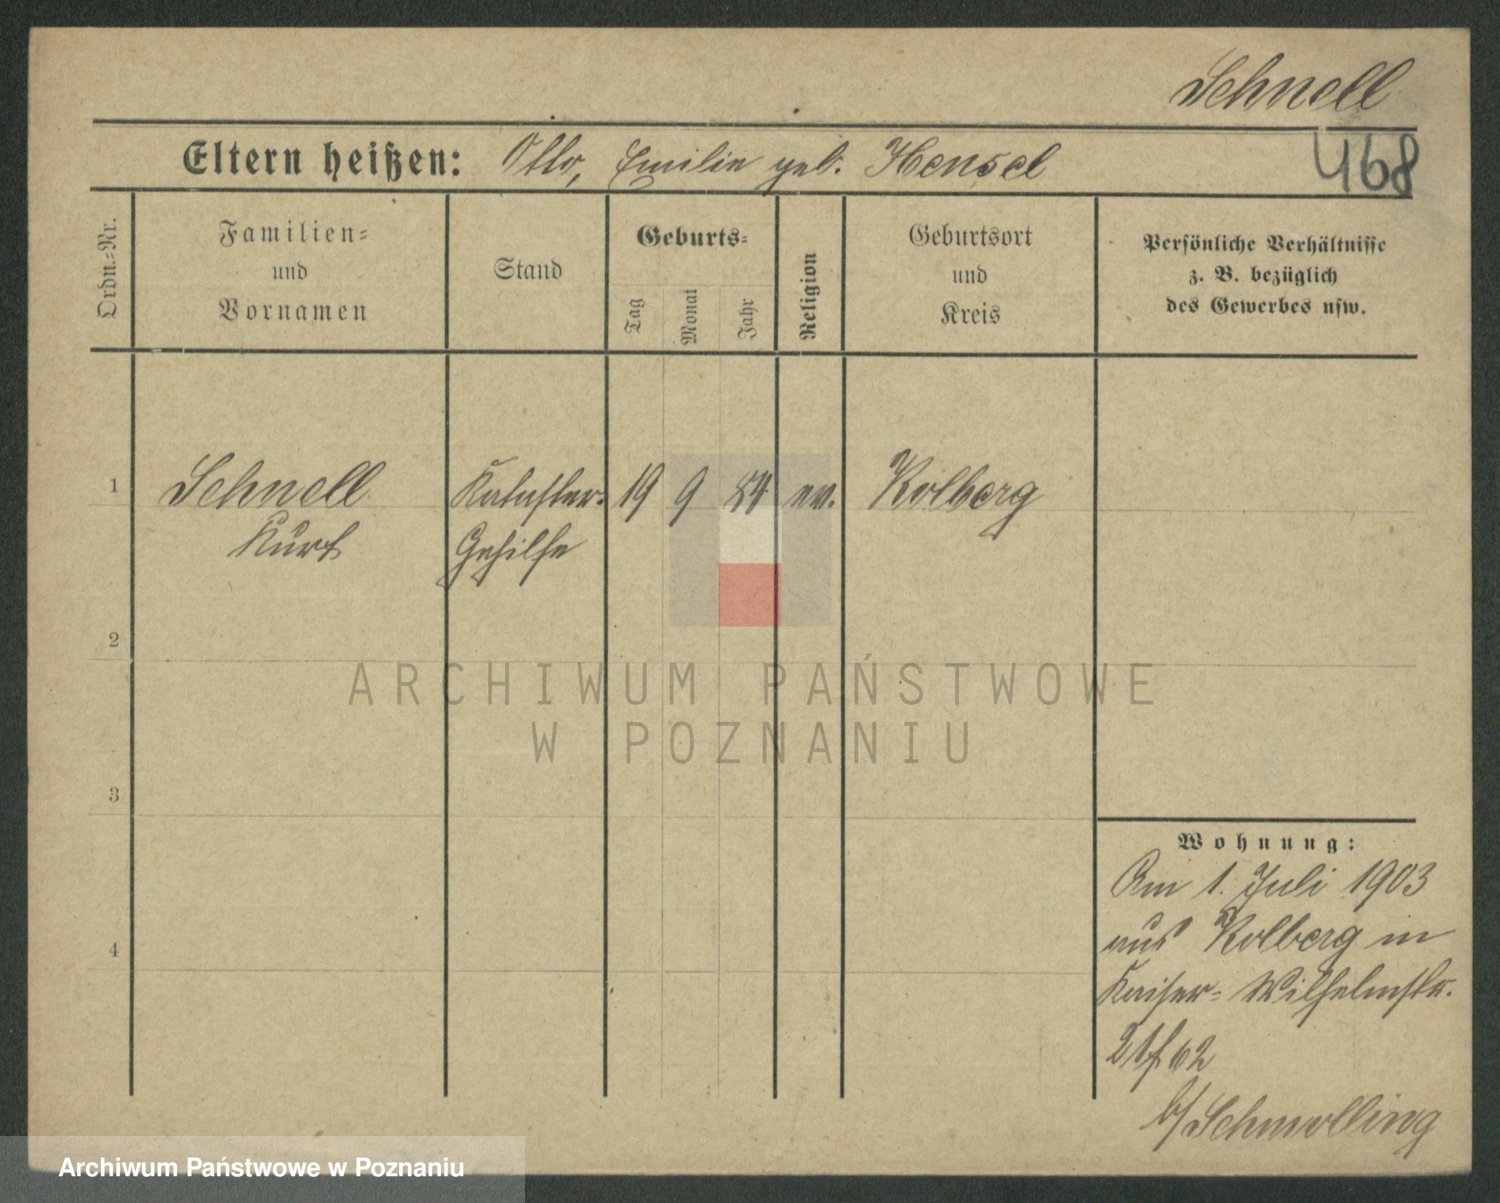 Schnell
468
Eltern heißen: Otto, Emilie geb. Hensel
Ordn.=Nr.
Familien=
und
Vornamen
Stand
Geburts=
Tag
Monat
Jahr
Religion
Geburtsort
und
Kreis
Persönliche Verhältnisse
z. B. bezüglich
des Gewerbes usw.
1
Schnell
Kurt
Kataster=
Gehilfe
19
9
84
ev.
Kolberg
2
3
4
Wohnung:
Am 1. Juli 1903
aus Kolberg in
Kaiser= Wilhelmstr.
62
b/ Schmolling
ARCHIWUM PAŃSTWOWE
W POZNANIU
Archiwum Państwowe w Poznaniu